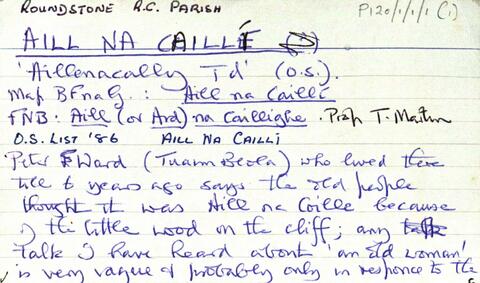 ROUNDSTONE R.C. PARISH
P120/1/1/1 (1)
AILL NA CAILLÍ
'Aillenacally Td' (O.S.).
Map BFnaG. : Aill na Caillí
FNB: Aill (or Ard) na Caillighe. Prop T. Martin
O.S. LIST '86 AILL NA CAILLÍ
Peter Ward (Tuaim Beola) who lived there
till 6 years ago says the old people
thought it was Aill na Coille because
of the little wood on the cliff; any
talk I have heard about 'an old woman'
is very vague & probably only in response to the